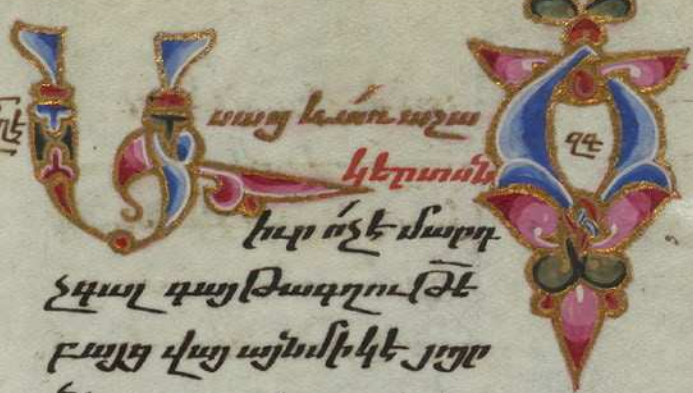 Ասաց և առ աշա
կերտսն
իւր ո՛չ է մարդ
չգալ գայթագղութ՟ե
բայց վայ այնմիկ է յոյր